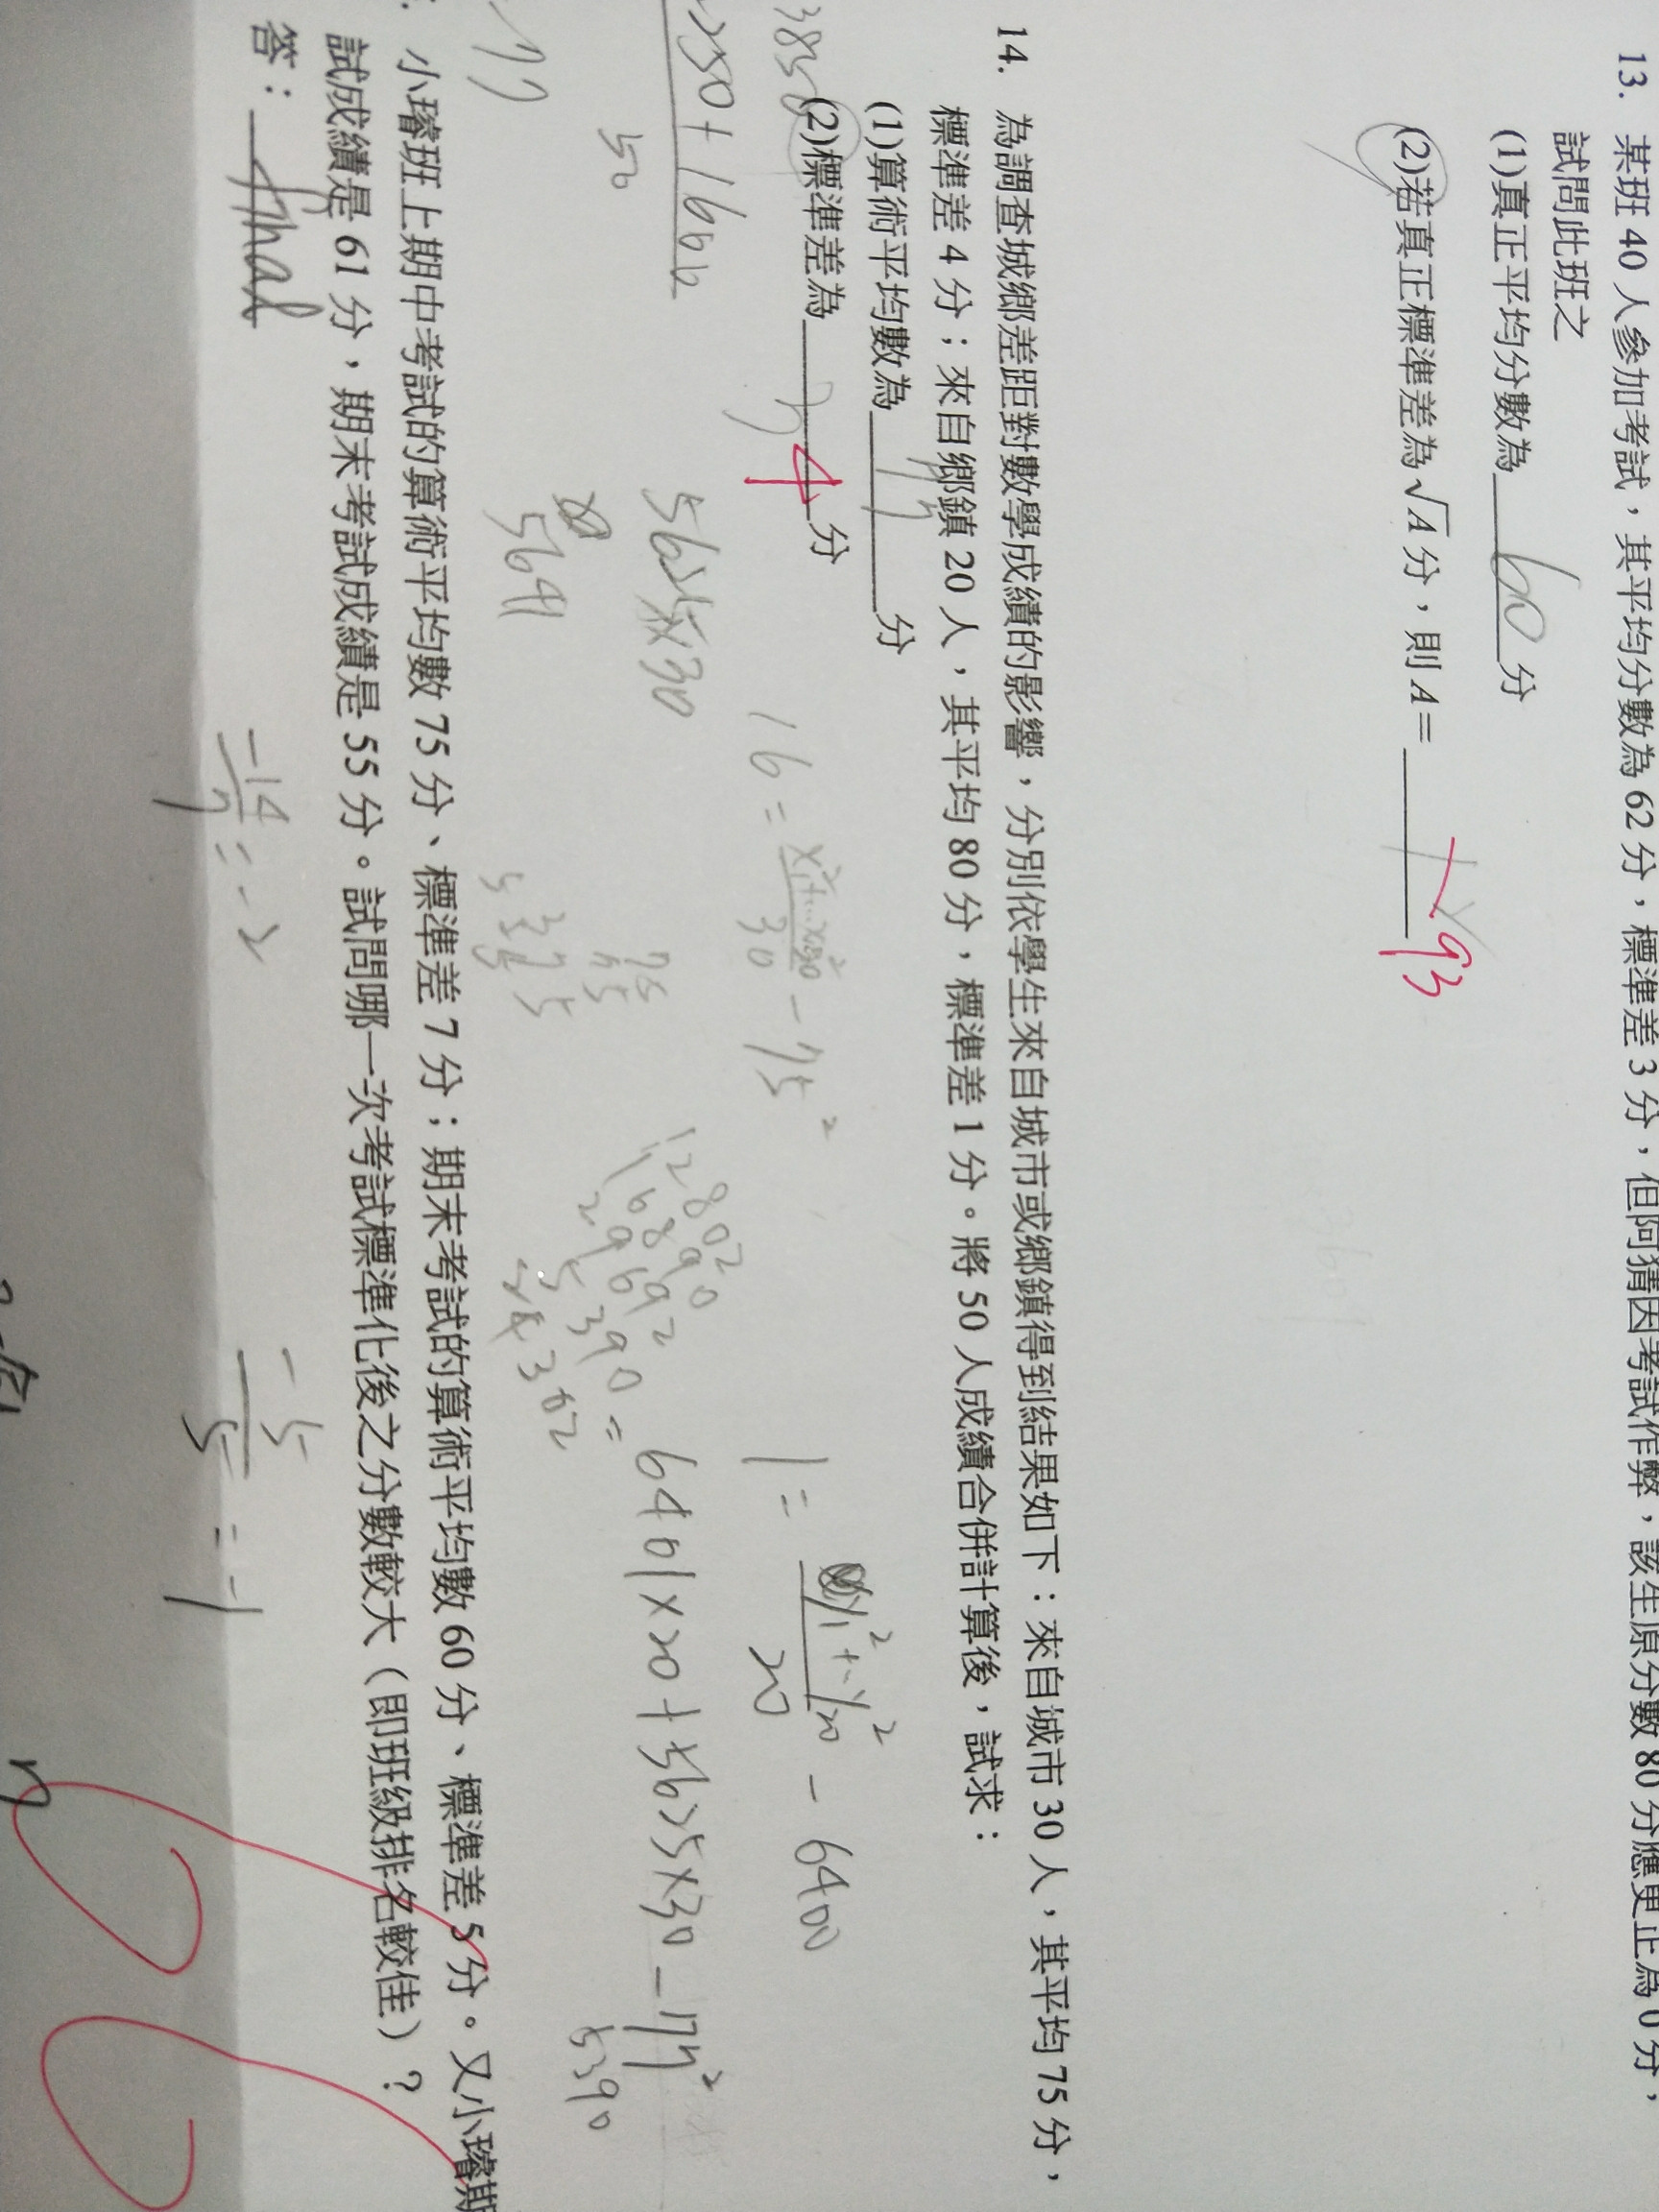 13. 某班 40 人參加考試，其平均分數為 62 分，標準差 3 分，但阿猜因考試作弊，該生原分數 80 分應更正為 0 分，
試問此班之
(1)真正平均分數為 60 分
(2)若真正標準差為 √A 分，則 A = 93
14. 為調查城鄉差距對數學成績的影響，分別依學生來自城市或鄉鎮得到結果如下：來自城市 30 人，其平均 75 分，
標準差 4 分；來自鄉鎮 20 人，其平均 80 分，標準差 1 分。將 50 人成績合併計算後，試求：
(1)算術平均數為 77 分
(2)標準差為 4 分
16 = x₁²+...x₃₀² / 30 - 75²
1 = y₁²+..y₂₀² / 20 - 6400
50
5625×30
= 6401×20+5625×30 - 77²
5390
5641
77
小璿班上期中考試的算術平均數 75 分、標準差 7 分；期末考試的算術平均數 60 分、標準差 5 分。又小璿期
試成績是 61 分，期末考試成績是 55 分。試問哪一次考試標準化後之分數較大（即班級排名較佳）？
答：final
-14/7 = -2
-5/5 = -1